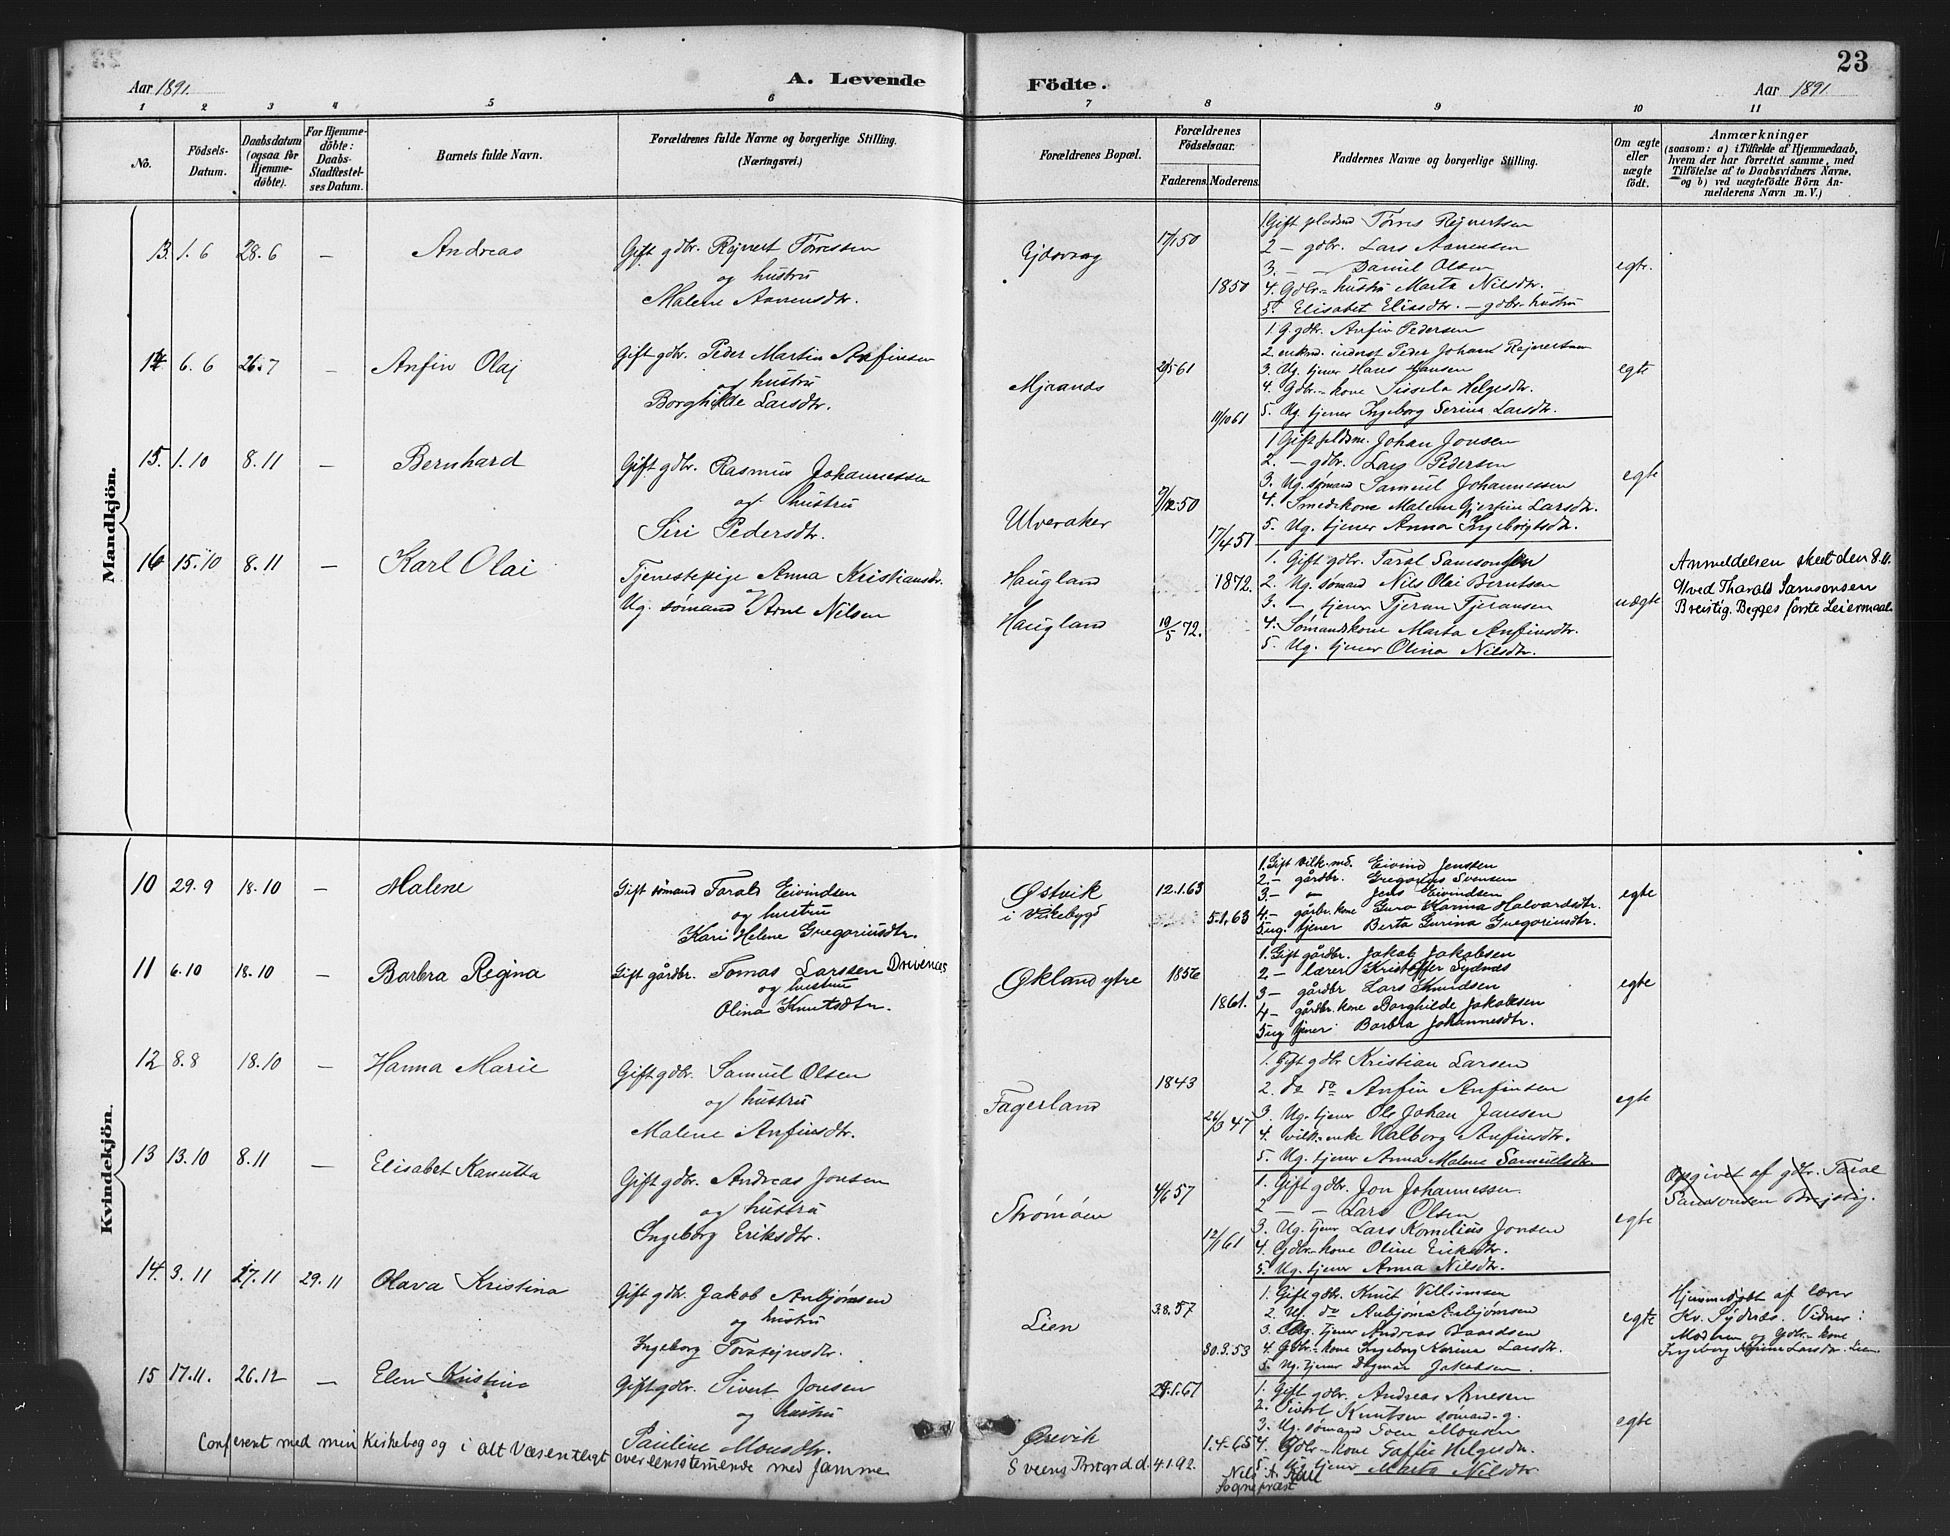 23
Aar 1891. A. Levende Födte. Aar 1891
1 2 3 4 5 6 7 8 9 10 11
No.
Födsels-Datum.
Daabsdatum (ogsaa for Hjemme-döbte).
For Hjemme-döbte: Daabs-Stadfæstel-ses Datum.
Barnets fulde Navn.
Forældrenes fulde Navne og borgerlige Stilling.
(Næringsvei.)
Forældrenes Bopæl.
Forældrenes Födselsaar.
Faderens. Moderens.
Faddernes Navne og borgerlige Stilling.
Om ægte eller uægte födt.
Anmærkninger
(saasom: a) i Tilfælde af Hjemmedaab,
hvem der har forrettet samme, med
Tilföielse af to Daabsvidners Navne,
og b) ved uægtefödte Börn An-
melderens Navn m. V.)
Mandkjön.
13. 1.6 28.6 — Andreas
Gift gdbr. Rejnert Tørressen
og hustru
Malene Aanensdtr.
17/1 50
1850
1. Gift pladsmd Tørres Rejnertsen
2 — gdbr. Lars Aanensen
3. — — Daniel Olsen
4. Gdbr.-hustru Marta Nilsdtr.
5. Elisabet Eliasdtr. — gdbr-hustru
egte.
14 6.6 26.7 — Anfin Olaj
Gift gdbr. Peder Martin Anfinsen
og hustru
Borghilde Larsdtr.
Mjaanæs
2/5 61
11/10 61
1. G. gdbr. Anfin Pedersen
2 enkmd. inderst Peder Johan Rejnertsen
3. Ug. tjener Hans Hansen
4. Gdbr-kone Sissela Helgesdtr.
5. Ug. tjener Ingeborg Serina Larsdtr.
egte
15. 1.10 8.11 — Bernhard
Gift gdbr. Rasmus Johannessen
og hustru
Siri Pedersdtr.
Ulveraker
9/12 50
17/4 57
1 Gift pldsm. Johan Jonsen
2. — gdbr. Lars Pedersen
3. Ug. sømand Samuel Johannessen
4. Smedkone Malene Larsdtr.
5. Ug. tjener Anna Ingebrigtsdtr.
egte
16 15.10 8.11 — Karl Olai
Tjenestepige Anna Kristiansdtr.
og
Ug. sømand Arne Nilsen
Haugland
Haugland
19/5 72.
1872.
1. Gift gdbr. Tarol Samsonsen
2. Ug. sømand Nils Olai Berntsen
3. — tjener Tjeran Tjeransen
4. Sømandskone Marta Anfinsdtr.
5. Ug. tjener Olina Nilsdtr.
uægte
Anmeldelsen skeet den 8.11.
ved Tharald Samsonsen
Breistig. Begges første Leiermaal.
Kvindekjön.
10 29.9 18.10 — Malene
Gift sømand Tarald Eivindsen
og hustru
Kari Helene Gregoriusdtr.
Østvik
i Vikebygd
12.1.63
5.1.63
1. Gift vilk.md. Eivind Jenssen
2 — gårdbr. Gregorius Svensen
3 — " Jens Eivindsen
4 — gårdbr. kone Guro Karina Halvardsdtr.
5 ug. tjener Berta Gurina Gregoriusdtr.
egte
11 6.10 18.10 — Barbra Regina
Gift gårdbr. Tomas Larssen Drivenæs
og hustru
Olina Knutsdtr.
Økland ytre
1856
1861.
1. Gift gårdbr. Jakob Jakobsen
2 — lærer Kristoffer Sydnæs
3 — gårdbr Lars Knudsen
4 — gårdbr. kone Borghilde Jakobsen
5 ug tjener Barbra Johannesdtr.
egte
12 8.8 18.10 — Hanna Marie
Gift gdbr. Samuel Olsen
og hustru
Malene Anfinsdtr.
Fagerland
1843
26/3 47
1. Gift gdbr Kristian Larsen
2. do do Anfin Anfinsen
3. Ug. tjener Ole Johan Jansen
4. vilk-enke Valborg Anfinsdtr.
5. Ug. tjener Anna Malene Samuelsdtr.
egte
13 13.10 8.11 — Elisabet Kanutta
Gift gdbr. Andreas Jonsen
og hustru
Ingeborg Eriksdtr.
Strømøen
4/6 57
12/1 61
1. Gift gdbr. Jon Johannessen
2 — — Lars Olsen
3. Ug. tjener Lars Kornelius Jonsen
4. Gdbr-kone Oline Eriksdtr.
5. Ug. tjener Anna Nilsdtr.
egte
Opgivet af gdbr. Tarol
Samsonsen Brejstig.
14. 3.11 27.11 29.11 Olava Kristina
Gift gdbr. Jakob Anbjørnsen
og hustru
Ingeborg Torstejnsdtr.
Lien
3.8.57
30.3.53
1. Gift gdbr. Knut Villumsen
2. Ug. do Anbjørn Anbjørnsen
3. Ug. tjener Andreas Baardsen
4. Gdbr-kone Ingeborg Karina Larsdtr.
5. Ug. tjener Dagmar Jakobsen.
egte
Hjemmedøbt af lærer
Kr. Sydnæs. Vidner:
Moderen og Gdbr-kone
Ingeborg Karina Larsdtr. Lien
15 17.11. 26.12 — Elen Kristine
Gift gdbr. Sivert Jonsen
og hustru
Pauline Monsdtr.
Ørevik
29.1.67
1.4.65
1. Gift gdbr. Andreas Arnesen
2. Sivert Knutsen sømand-g.
3. Ug. sømand Sven Monsen
4. Gdbr-kone Helgesdtr.
5. Ug. tjener Marta Nilsdtr.
egte
Conferert med min Kirkebog og i alt Væsentligt overensstemmende med samme
Sveens Præstegård d. 4.1.92.
Nils A.
Sognepræst